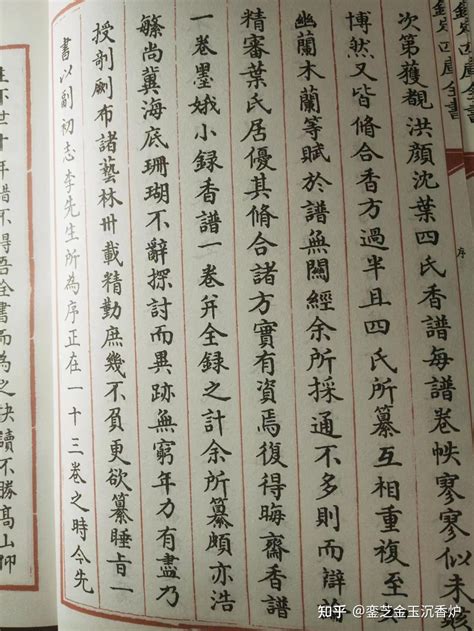 欽定四庫全書
次第獲覩洪顔沈葉四氏香譜每譜卷帙寥寥似未
博然又皆脩合香方過半且四氏所纂互相重複至
幽蘭木蘭等賦於譜無關經余所採通不多則而辯論
精審葉氏居優其脩合諸方實有資焉復得晦齋香譜
一卷墨娥小録香譜一卷并全録之計余所纂頗亦浩
繁尚冀海底珊瑚不辭探討而異跡無窮年力有盡乃
授剞劂布諸藝林卅載精勤庶幾不負更欲纂睡旨一
書以副初志李先生所為序正在一十三卷之時今先
生下世十年惜不得吾全書而為之快讀不勝高山仰
序
知乎 @銮芝金玉沉香炉